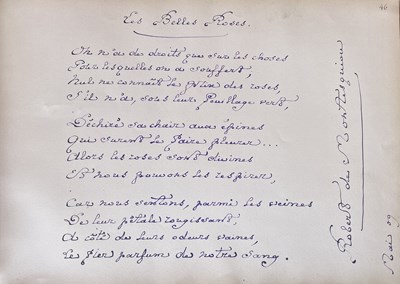 Les Belles Roses.
On n'a de droits que sur les choses
Pour lesquelles on a souffert,
Nul ne connaît le prix des roses,
S'il n'a, sous leur feuillage vert,
Déchiré sa chair aux épines
Qui surent le faire pleurer...
Alors les roses sont divines
Et nous pouvons les respirer,
Car nous sentons, parmi les veines
De leur pétale rougissant,
A côté de leurs odeurs vaines,
Le fier parfum de notre sang.
Robert de Montesquiou
Mai 09